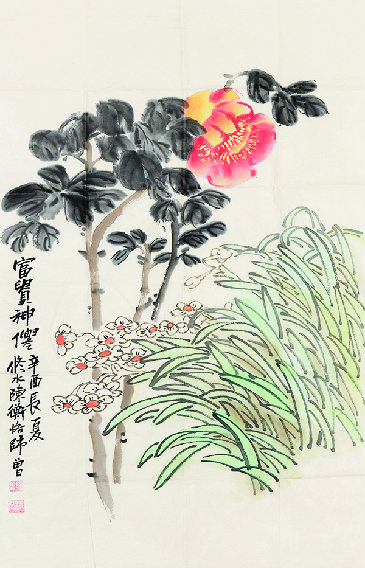 富貴神僊
辛酉長夏
修水陳衡恪師曾